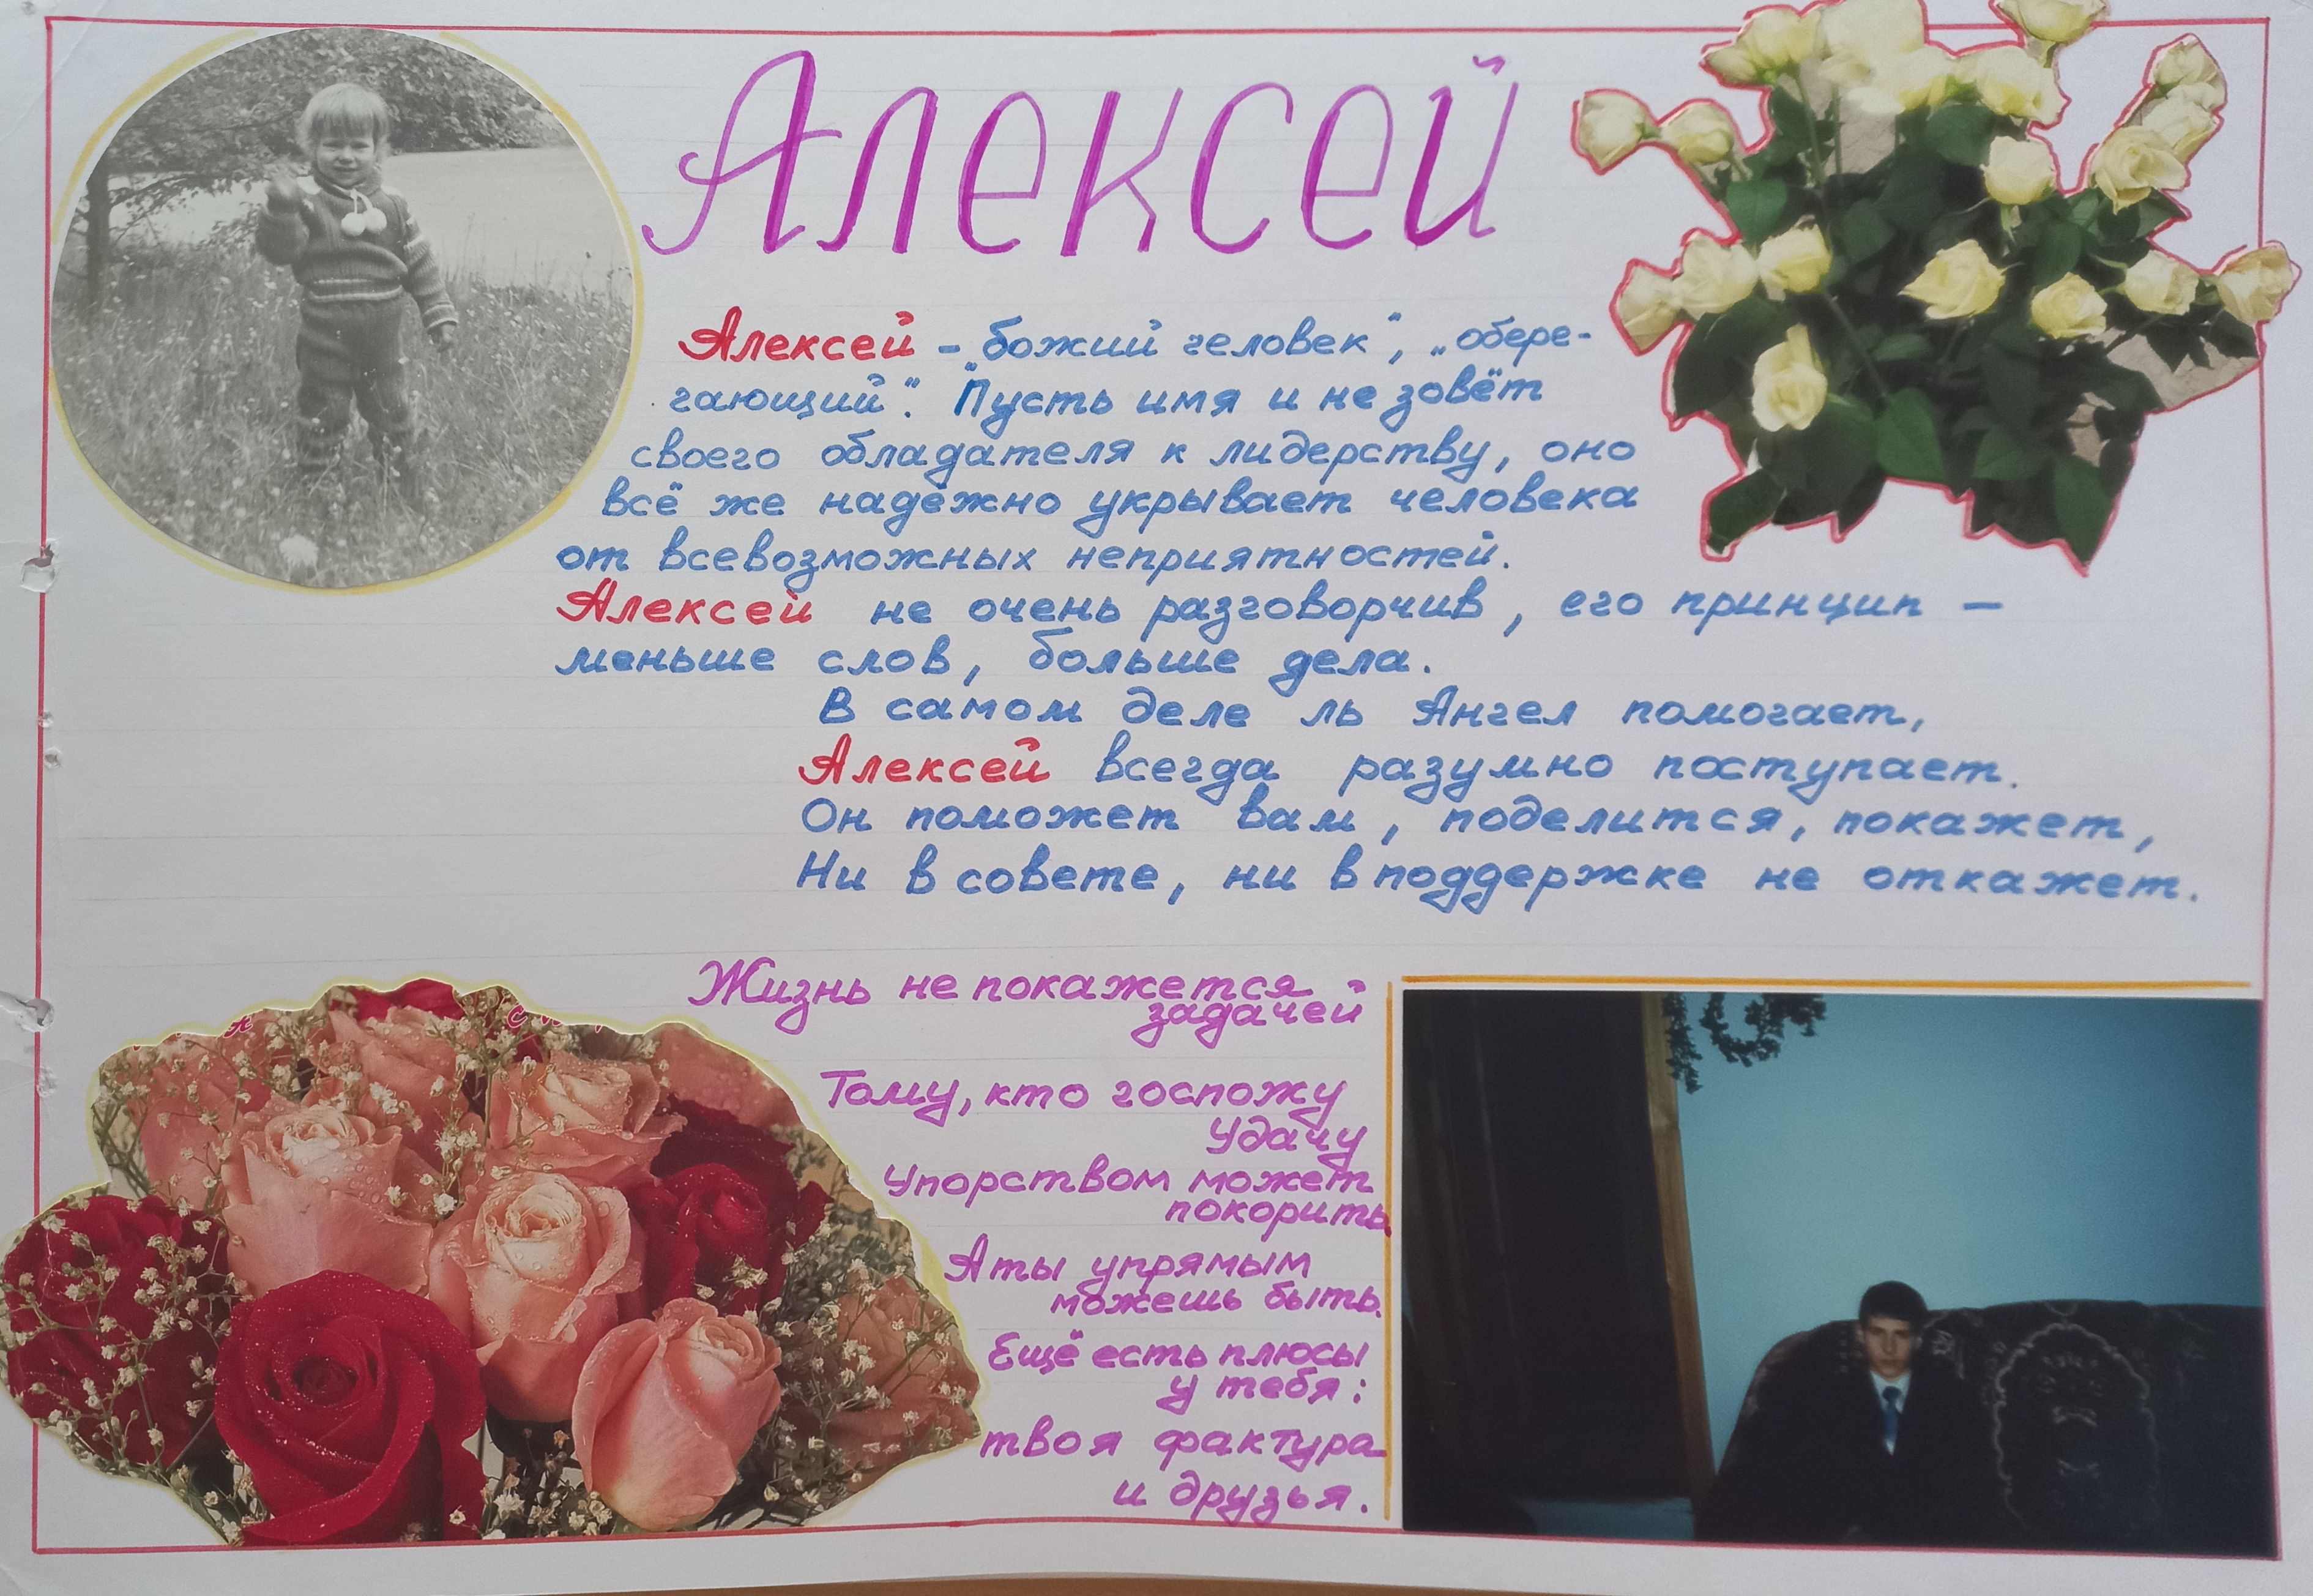 Алексей
Алексей - "божий человек", "обере-
гающий". "Пусть имя и не зовёт
своего обладателя к лидерству, оно
всё же надёжно укрывает человека
от всевозможных неприятностей.
Алексей не очень разговорчив, его принцип —
меньше слов, больше дела.
В самом деле ль Ангел помогает,
Алексей всегда разумно поступает.
Он поможет вам, поделится, покажет,
Ни в совете, ни в поддержке не откажет.
Жизнь не покажется
задачей
Тому, кто госпожу
Удачу
Упорством может
покорить.
А ты упрямым
можешь быть.
Ещё есть плюсы
у тебя:
твоя фактура
и друзья.